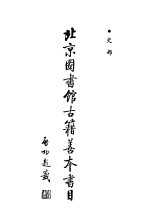 •史部
北京圖書館古籍善本書目
啟功題籤